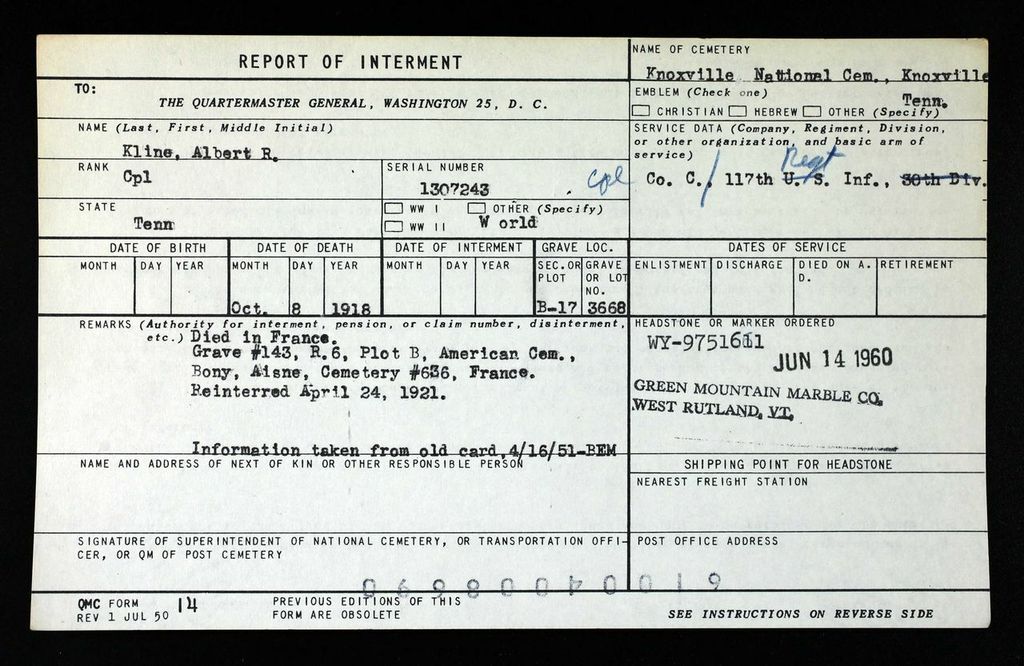 REPORT OF INTERMENT
NAME OF CEMETERY
Knoxville National Cem., Knoxville
Tenn.
TO:
THE QUARTERMASTER GENERAL, WASHINGTON 25, D. C.
EMBLEM (Check one)
CHRISTIAN HEBREW OTHER (Specify)
NAME (Last, First, Middle Initial)
Kline, Albert R.
SERVICE DATA (Company, Regiment, Division,
or other organization, and basic arm of
service)
Regt
Co. C., 117th U. S. Inf., 30th Div.
RANK
Cpl
SERIAL NUMBER
1307243
Cpl
STATE
Tenn
WW I OTHER (Specify)
WW II World
DATE OF BIRTH DATE OF DEATH DATE OF INTERMENT GRAVE LOC. DATES OF SERVICE
MONTH DAY YEAR MONTH DAY YEAR MONTH DAY YEAR SEC.OR PLOT GRAVE OR LOT NO. ENLISTMENT DISCHARGE DIED ON A. D. RETIREMENT
Oct. 8 1918 B-17 3668
REMARKS (Authority for interment, pension, or claim number, disinterment,
etc.) Died in France.
Grave #143, R.6, Plot B, American Cem.,
Bony, Aisne, Cemetery #636, France.
Reinterred April 24, 1921.
Information taken from old card,4/16/51-BEM
HEADSTONE OR MARKER ORDERED
JUN 14 1960
GREEN MOUNTAIN MARBLE CO.
WEST RUTLAND, VT.
NAME AND ADDRESS OF NEXT OF KIN OR OTHER RESPONSIBLE PERSON
SHIPPING POINT FOR HEADSTONE
NEAREST FREIGHT STATION
SIGNATURE OF SUPERINTENDENT OF NATIONAL CEMETERY, OR TRANSPORTATION OFFI-
CER, OR QM OF POST CEMETERY
POST OFFICE ADDRESS
QMC FORM 14
REV 1 JUL 50
PREVIOUS EDITIONS OF THIS
FORM ARE OBSOLETE
SEE INSTRUCTIONS ON REVERSE SIDE